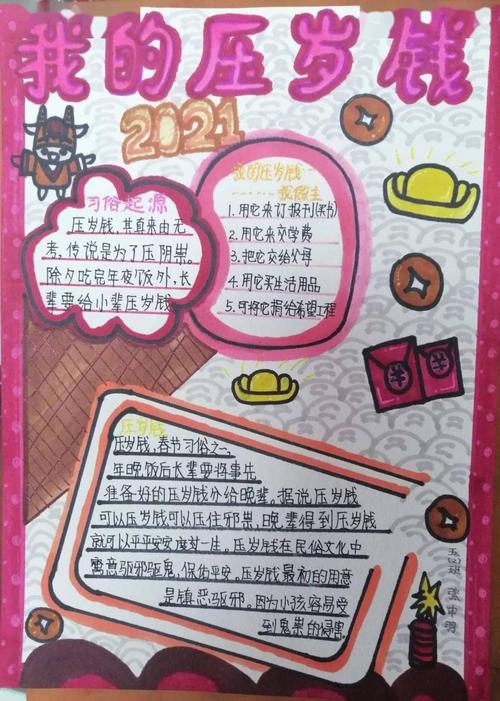 我的压岁钱
2021
习俗起源
压岁钱,其真来由无
考,传说是为了压阴祟。
除夕吃完年夜饭外,长
辈要给小辈压岁钱
我的压岁钱
我做主
1.用它来订报刊(买书)
2.用它来交学费
3.把它交给父母
4.用它买生活用品
5.可将它捐给希望工程
压岁钱
压岁钱,春节习俗之一,
年晚饭后长辈要将事先
准备好的压岁钱分给晚辈。据说压岁钱
可以压岁钱可以压住邪祟,晚辈得到压岁钱
就可以平平安安度过一生。压岁钱在民俗文化中
寓意驱邪驱鬼,保佑平安。压岁钱最初的用意
是镇恶驱邪。因为小孩容易受
到鬼祟的侵害
班